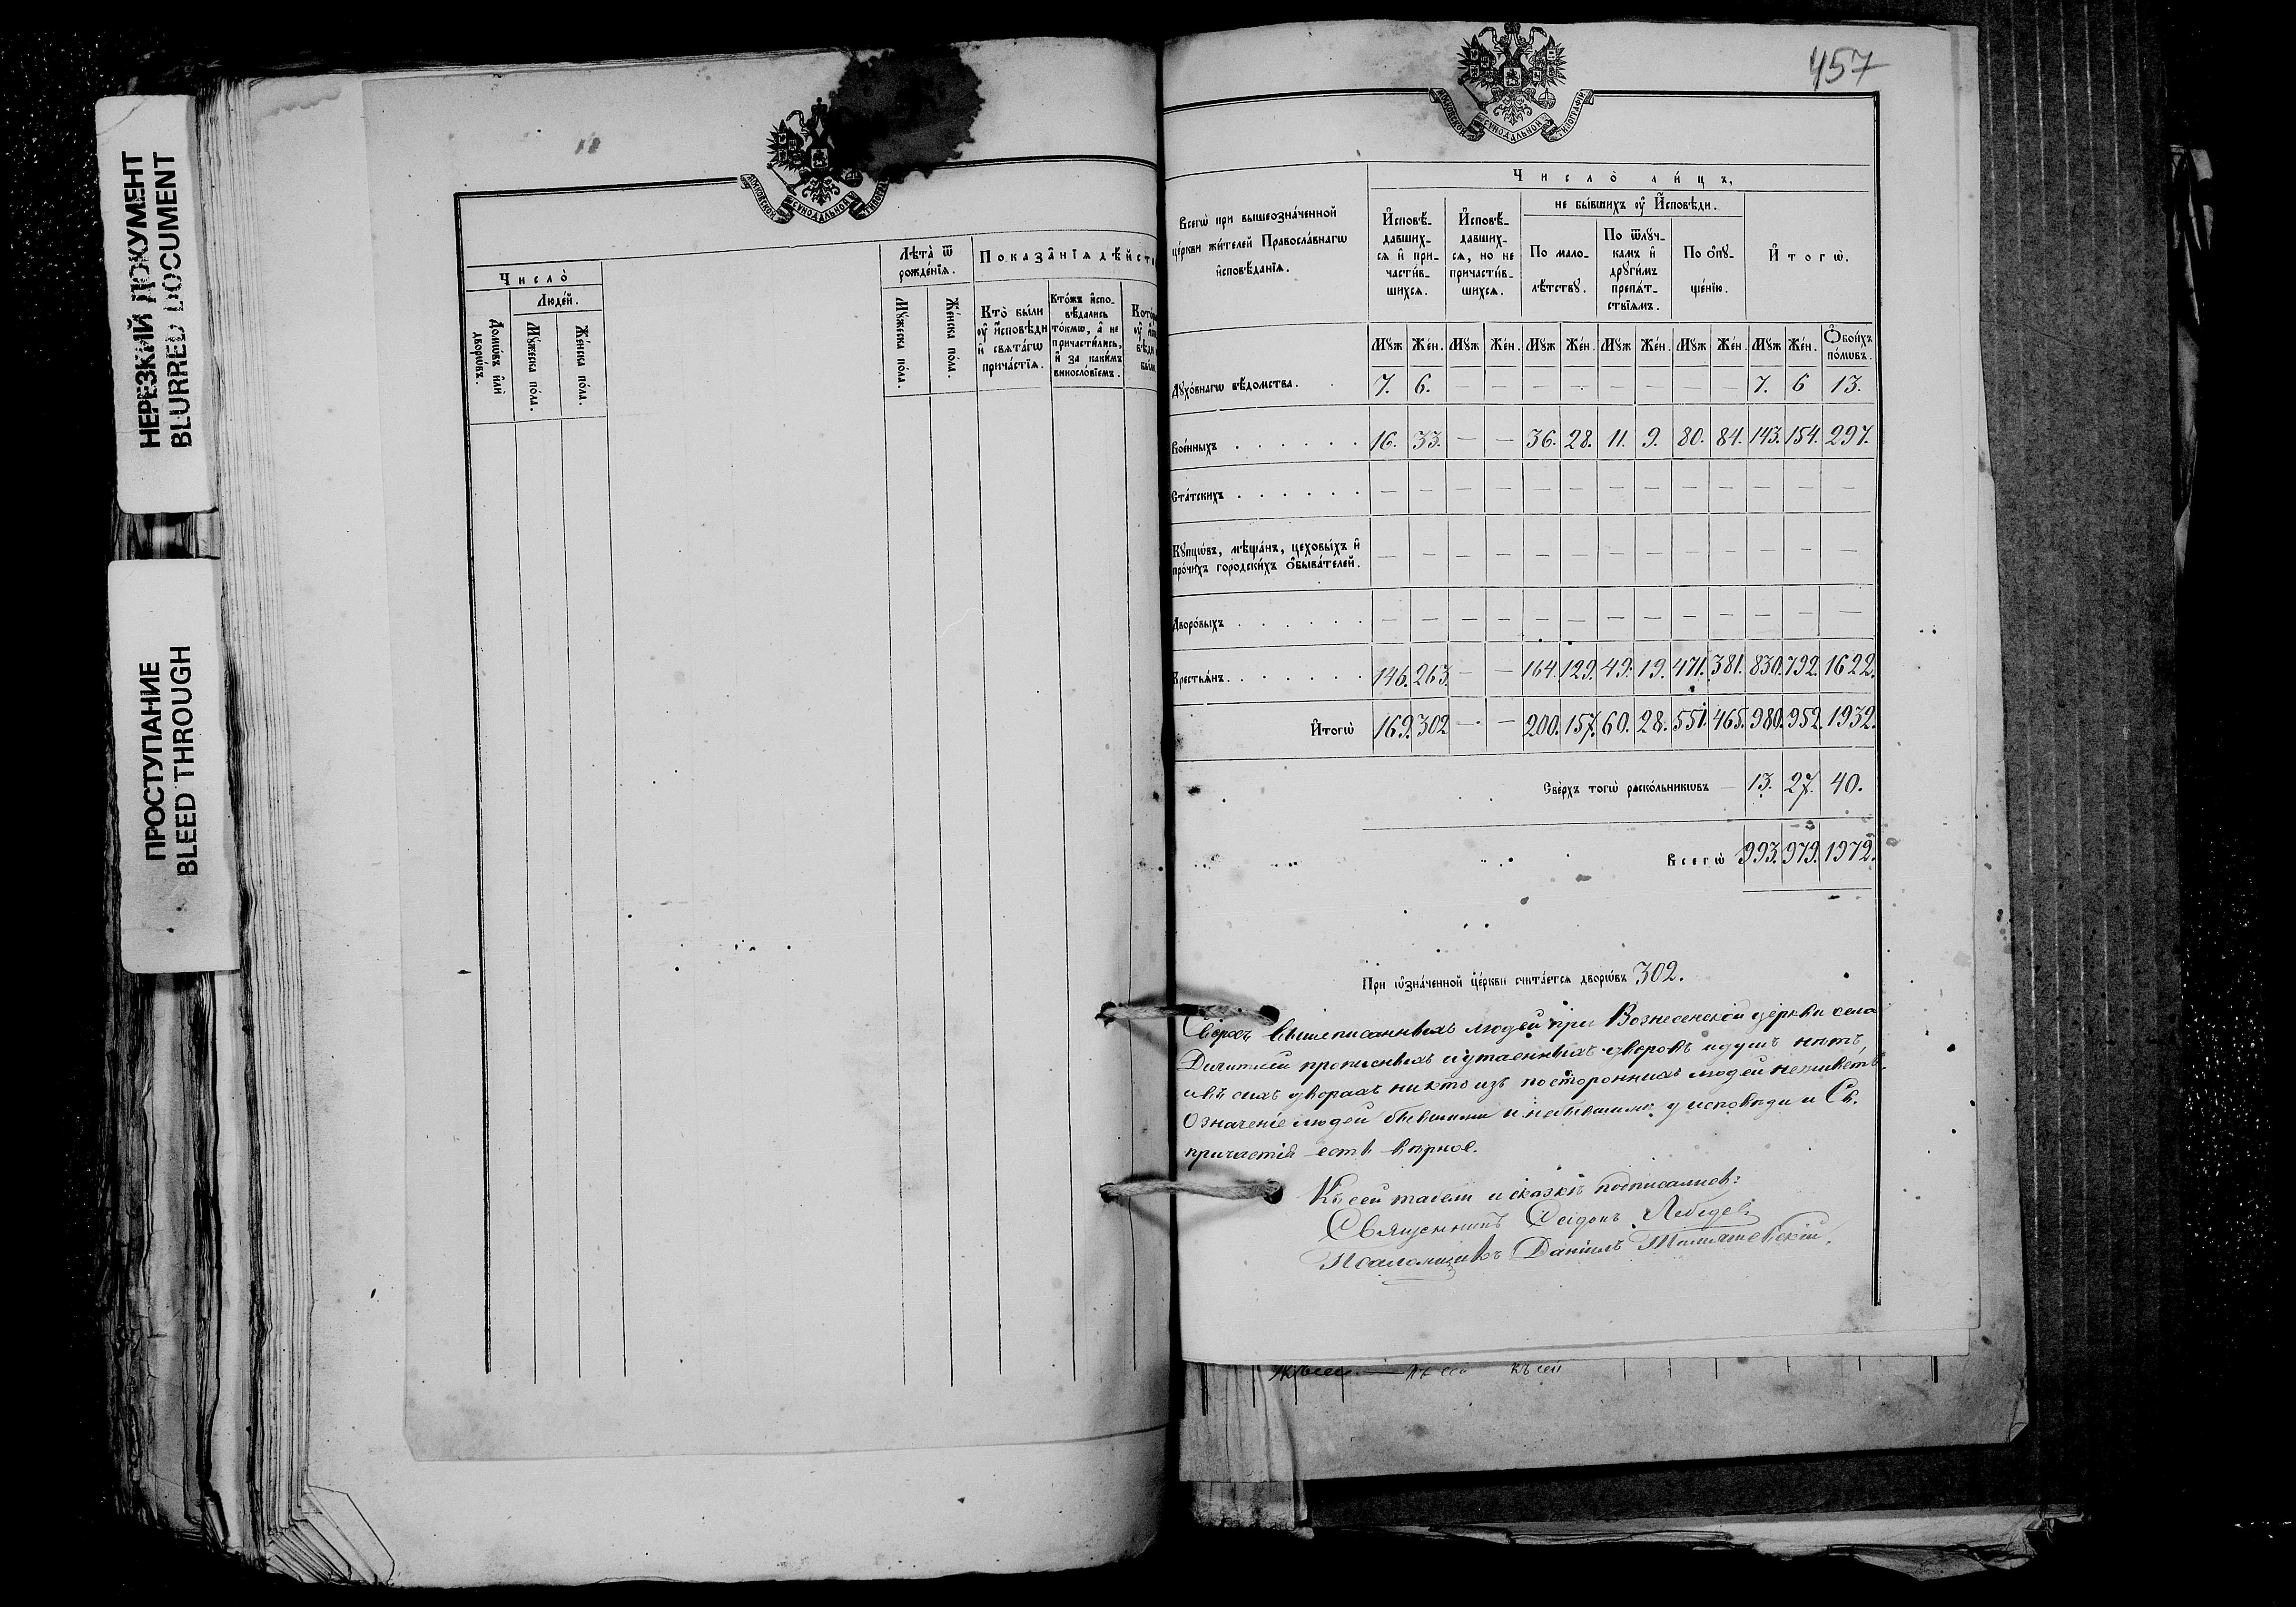 НЕРЕЗКИЙ ДОКУМЕНТ
BLURRED DOCUMENT
ПРОСТУПАНИЕ
BLEED THROUGH
МОСКОВСКОЙ СѴНОДАЛЬНОЙ
Число̀
Домѡ́въ и҆лѝ дворѡ́въ.
Люде́й.
Мꙋ́жеска по́ла.
Же́нска по́ла.
Лѣта̀ ѿ рожде́нїѧ.
Мꙋ́жеска по́ла.
Же́нска по́ла.
Показа̑нїѧ
Кто̀ бы́ли
ᲂу҆ и҆сповѣди
и҆ свѧта́гѡ
прича́стїѧ.
Кто́жъ и҆спо-
вѣдались
то́кмѡ, а҆ не
причасти́лись,
и҆ за каки́мъ
винослѡ́вїемъ.
457
МОСКОВСКОЙ СѴНОДАЛЬНОЙ ТИПОГРАФІИ
Всегѡ̀ при вышеозна́ченной
це́ркви жи́телей Правосла́внагѡ
и҆сповѣ́данїѧ.
Число̀ ли́цъ,
И҆сповѣ́-
давших-
сѧ и҆ при-
части́в-
шихсѧ.
И҆сповѣ́-
давших-
сѧ, но не
причасти́в-
шихсѧ.
не бы́вшихъ ᲂу҆ И҆сповѣди.
По мало-
лѣ́тствꙋ.
По ѿлꙋч-
камъ и҆
дрꙋги́мъ
препѧ́т-
ствїѧмъ.
По ѻ҆пꙋ-
ще́нїю.
И҆тогѡ̀.
Мꙋж Же́н. Мꙋж Же́н. Мꙋж Же́н. Мꙋж Же́н. Мꙋж Же́н. Мꙋж Же́н. Ѻ҆бои́хъ по́лѡвъ.
Дꙋхо́внагѡ вѣ́домства. 7. 6. — — — — — — — — 7. 6 13.
Вое́нныхъ 16. 33. — — 36. 28. 11. 9. 80. 84. 143. 154. 297.
Ста́тскихъ — — — — — — — — — — — — —
Кꙋпцѡ́въ, мѣща́нъ, цеховы́хъ и҆
про́чихъ городски́хъ ѻ҆быва́телей. — — — — — — — — — — — — —
Дворо́выхъ — — — — — — — — — — — — —
Крестьѧ́нъ 146. 263. — — 164. 129. 49. 19. 471. 381. 830. 792. 1622.
И҆тогѡ̀ 169. 302 — — 200. 157. 60. 28. 551. 465. 980. 952. 1932.
Све́рхъ тогѡ̀ раско́льникѡвъ 13. 27. 40.
Всегѡ̀ 993. 979. 1972.
При ѡ҆зна́ченной це́ркви счита́етсѧ дворѡ́въ 302.
Сверхъ вышеписанныхъ людей при Вознесенской церкви села
прописныхъ и утаенныхъ дворовъ и душъ нѣтъ,
и въ сихъ дворахъ никто изъ постороннихъ людей неживетъ.
Означеніе людей бывшими и небывшими у исповѣди и Св.
причастія есть вѣрное.
Къ сей табели и сказкѣ подписались:
Священникъ Лебедевъ
Псаломщикъ Даніилъ
Къ сей